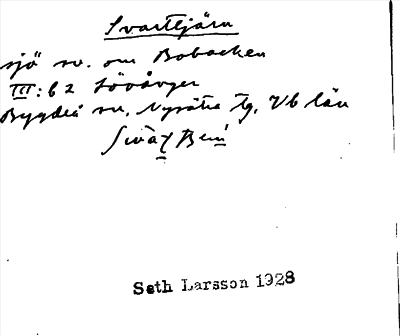 Svarttjärn
sjö sv. om Bobacken
III:62 Lövånger
Bygdeå sn, Nysätra tg, Vb län
Seth Larsson 1928